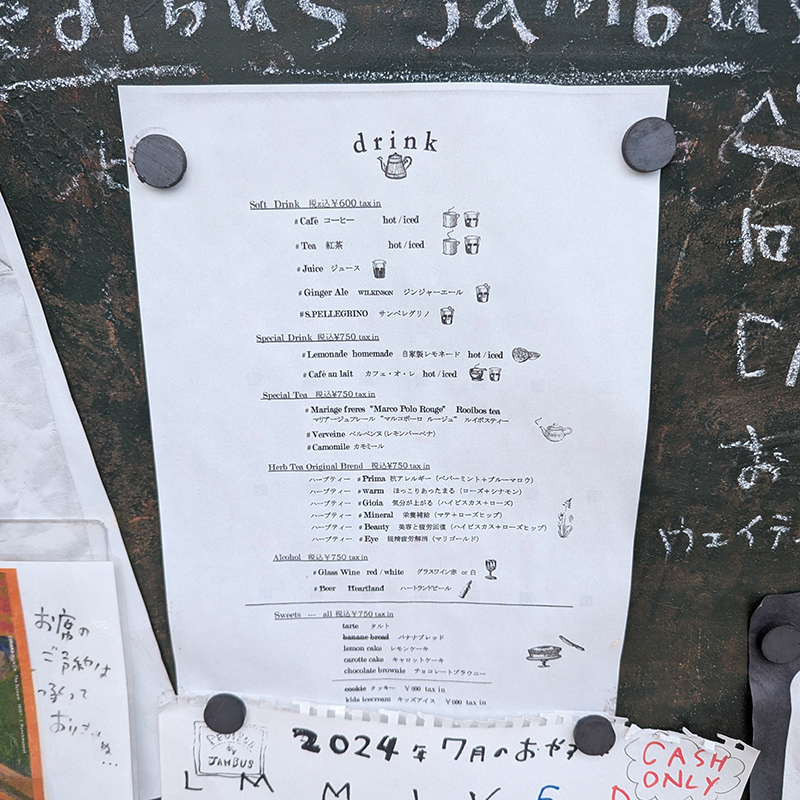 drink
Soft Drink 税込¥600 tax in
#Cafè コーヒー hot / iced
#Tea 紅茶 hot / iced
#Juice ジュース
#Ginger Ale WILKINSON ジンジャーエール
#S.PELLEGRINO サンペレグリノ
Special Drink 税込¥750 tax in
#Lemonade homemade 自家製レモネード hot / iced
#Cafè au lait カフェ・オ・レ hot / iced
Special Tea 税込¥750 tax in
#Mariage freres "Marco Polo Rouge" Rooibos tea
マリアージュフレール "マルコポーロ ルージュ" ルイボスティー
#Verveine ベルベンヌ(レモンバーベナ)
#Camomile カモミール
Herb Tea Original Brend 税込¥750 tax in
ハーブティー #Prima 抗アレルギー(ペパーミント+ブルーマロウ)
ハーブティー #warm ほっこりあったまる(ローズ+シナモン)
ハーブティー #Gioia 気分が上がる(ハイビスカス+ローズ)
ハーブティー #Mineral 栄養補給(マテ+ローズヒップ)
ハーブティー #Beauty 美容と疲労回復(ハイビスカス+ローズヒップ)
ハーブティー #Eye 眼精疲労解消(マリゴールド)
Alcohol 税込¥750 tax in
#Glass Wine red / white グラスワイン赤 or 白
#Beer Heartland ハートランドビール
Sweets --- all 税込¥750 tax in
tarte タルト
banane bread バナナブレッド
lemon cake レモンケーキ
carotte cake キャロットケーキ
chocolate brownie チョコレートブラウニー
cookie クッキー tax in
kids icecream キッズアイス tax in
お席の
ご予約は
承って
2024年 7月のおや
JAMBUS
CASH
ONLY
L M M J V S D
jambus
お
ウェイテ